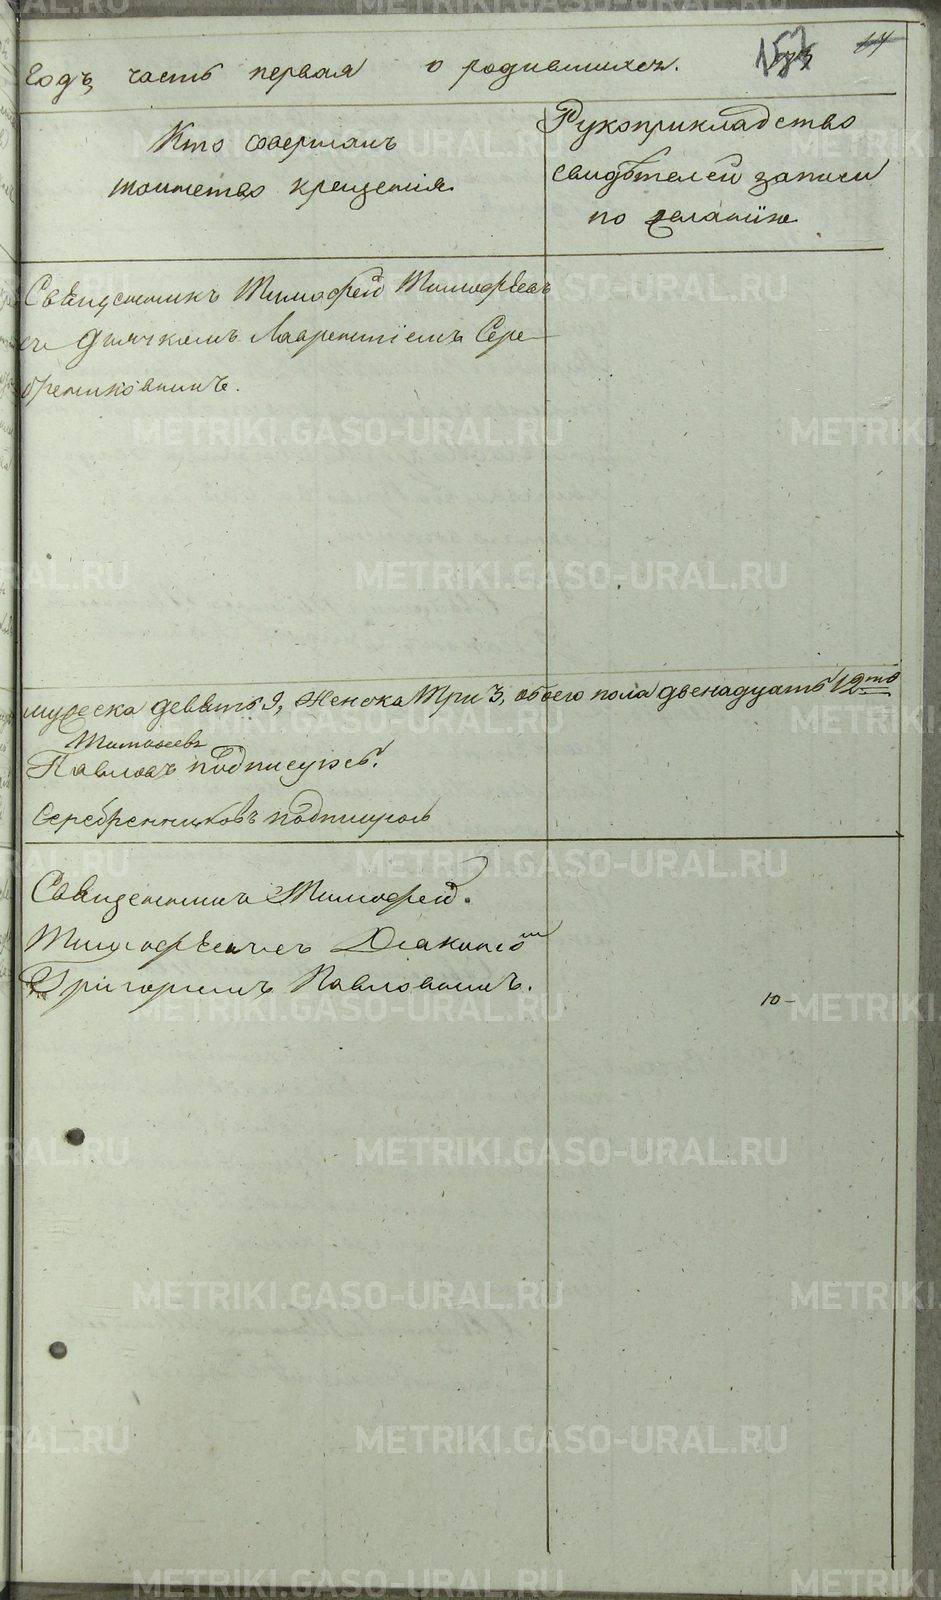 годъ часть первая о родившихся. 157 14
Кто совершалъ
таинство крещенія
Рукоприкладство
свидѣтелей записи
по желанію
Священникъ Тимофей Тимофѣевъ
съ дьячкомъ Лаврентіемъ Сере
бренниковымъ.
мужеска девять 9, женска три 3, обоего пола двенадцать 12ть
Тимофеевъ
Павловъ подписуюсь.
Серебренниковъ подписуюсь
Священникъ Тимофей.
Тимофѣевичь Діакономъ
Григоріемъ Павловымъ.
10-
METRIKI.GASO-URAL.RU